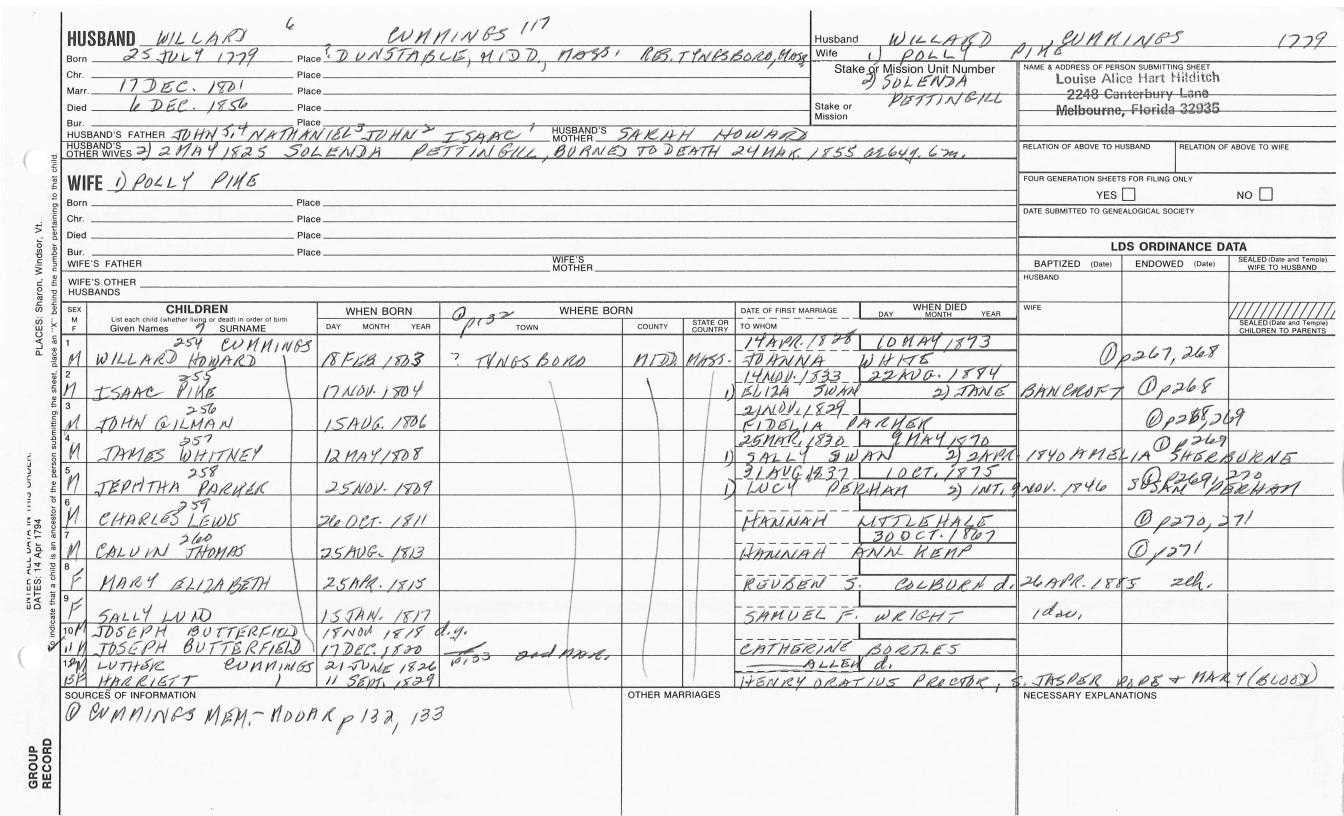 HUSBAND WILLARD 6 CUMMINGS 117
Born 25 JULY 1779 Place ? DUNSTABLE, MIDD., MASS. RES. TYNGSBORO, MASS
Chr. Place
Marr. 17 DEC. 1801 Place
Died 6 DEC. 1856 Place
Bur. Place
HUSBAND'S FATHER JOHN 5, 4 NATHANIEL 3 JOHN 2 ISAAC 1 HUSBAND'S MOTHER SARAH HOWARD
HUSBAND'S OTHER WIVES 2) 2 MAY 1825 SOLENDA PETTINGILL, BURNED TO DEATH 24 MAR. 1855 at 64y. 6m.
Husband WILLARD CUMMINGS 1779
Wife 1) POLLY PIKE
Stake or Mission Unit Number
2) SOLENDA PETTINGILL
Stake or Mission
NAME & ADDRESS OF PERSON SUBMITTING SHEET
Louise Alice Hart Hilditch
2248 Canterbury Lane
Melbourne, Florida 32935
RELATION OF ABOVE TO HUSBAND RELATION OF ABOVE TO WIFE
FOUR GENERATION SHEETS FOR FILING ONLY
YES NO
DATE SUBMITTED TO GENEALOGICAL SOCIETY
WIFE 1) POLLY PIKE
Born Place
Chr. Place
Died Place
Bur. Place
WIFE'S FATHER WIFE'S MOTHER
WIFE'S OTHER HUSBANDS
LDS ORDINANCE DATA
BAPTIZED (Date) ENDOWED (Date) SEALED (Date and Temple) WIFE TO HUSBAND
HUSBAND
WIFE
SEALED (Date and Temple) CHILDREN TO PARENTS
SEX M F
CHILDREN
List each child (whether living or dead) in order of birth
Given Names 7 SURNAME
WHEN BORN
DAY MONTH YEAR
① p132
WHERE BORN
TOWN COUNTY STATE OR COUNTRY
DATE OF FIRST MARRIAGE
TO WHOM
WHEN DIED
DAY MONTH YEAR
254 CUMMINGS 14 APR. 1828 10 MAY 1873
1 M WILLARD HOWARD 18 FEB 1803 ? TYNGSBORO MIDD. MASS. JOANNA WHITE ① p267, 268
255 14 NOV. 1833 22 AUG. 1884
2 M ISAAC PIKE 17 NOV. 1804 1) ELIZA SWAN 2) JANE BANCROFT ① p268
256 21 NOV. 1829
3 M JOHN GILMAN 15 AUG. 1806 FIDELIA PARKER ① p268, 269
257 25 MAR. 1830 9 MAY 1870 ① p269
4 M JAMES WHITNEY 12 MAY 1808 1) SALLY SWAN 2) 2 APR 1840 AMELIA SHERBURNE
258 31 AUG 1837 1 OCT. 1875 ① p269, 270
5 M JEPHTHA PARKER 25 NOV. 1809 1) LUCY PERHAM 2) INT. 9 NOV. 1846 SUSAN PERHAM
259
6 M CHARLES LEWIS 26 OCT. 1811 HANNAH LITTLEHALE ① p270, 271
260 30 OCT. 1867
7 M CALVIN THOMAS 25 AUG. 1813 HANNAH ANN KEMP ① p271
8 F MARY ELIZABETH 25 APR. 1815 REUBEN S. COLBURN d. 26 APR. 1885 2ch.
9 F SALLY LUND 15 JAN. 1817 SAMUEL F. WRIGHT 1 dau.
10 M JOSEPH BUTTERFIELD 18 NOV 1818 d.y.
11 M JOSEPH BUTTERFIELD 17 DEC. 1820 CATHERINE BORTLES
12 M LUTHER CUMMINGS 21 JUNE 1826 p133 2nd mar. ALLEN d.
13 F HARRIETT 11 SEPT. 1829 HENRY ORATIUS PROCTOR, S. JASPER POPE & MARY (BLOOD)
SOURCES OF INFORMATION
① CUMMINGS MEM.- MOOAR p 132, 133
OTHER MARRIAGES
NECESSARY EXPLANATIONS
PLACES: Sharon, Windsor, Vt.
DATES: 14 Apr 1794
to indicate that a child is an ancestor of the person submitting the sheet, place an "X" behind the number pertaining to that child.
GROUP RECORD